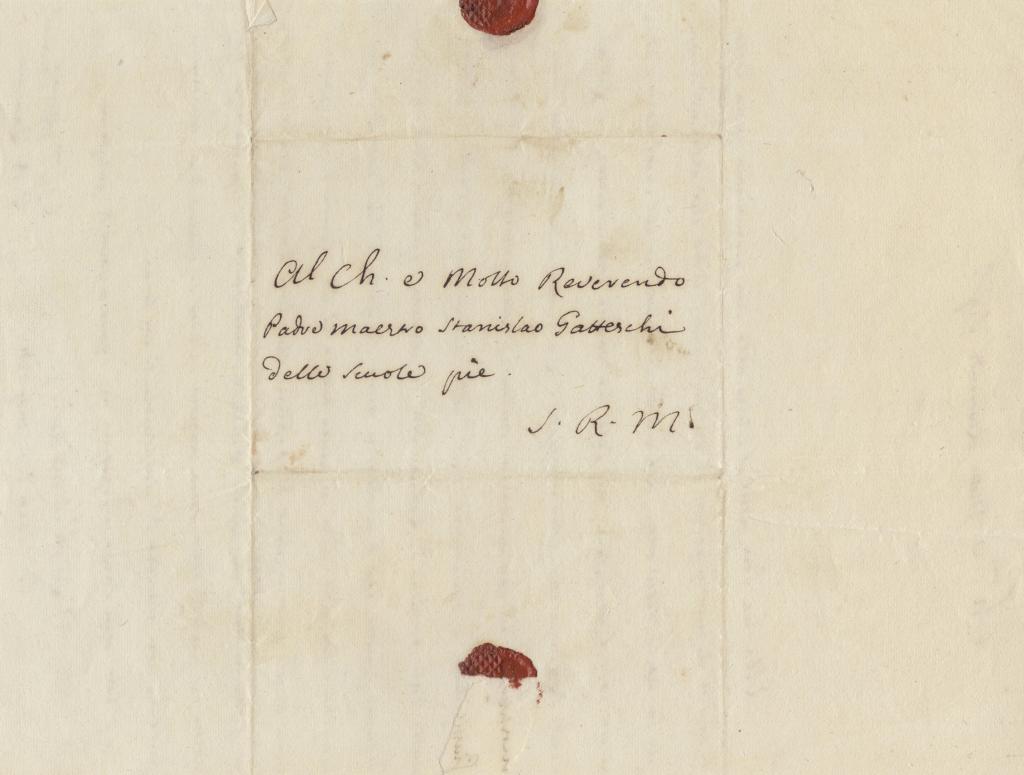 Al Ch. e Molto Reverendo
Padre maestro Stanislao Gatteschi
delle Scuole pie.
S. R. M.